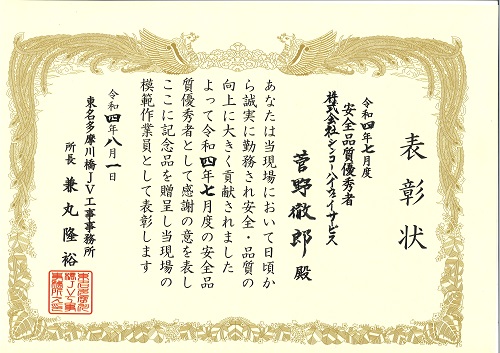 表彰状
令和四年七月度
安全品質優秀者
株式会社シンコーハイウェイサービス
菅野徹郎殿
あなたは当現場において日頃か
ら誠実に勤務され安全・品質の
向上に大きく貢献されました
よって令和四年七月度の安全品
質優秀者として感謝の意を表し
ここに記念品を贈呈し当現場の
模範作業員として表彰します
令和四年八月一日
東名多摩川橋JV工事事務所
所長 兼丸隆裕